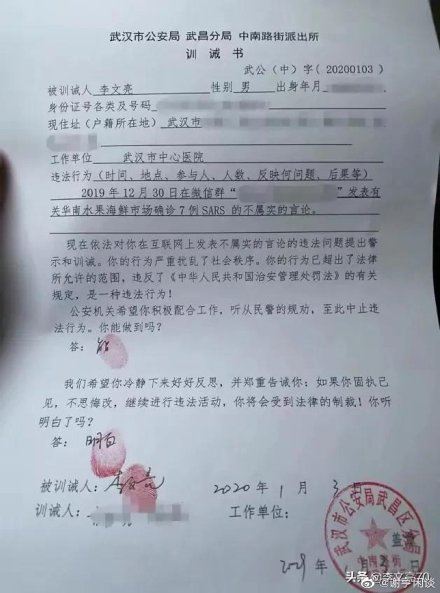 武汉市公安局 武昌分局 中南路街派出所
训 诫 书
武公（中）字（20200103）
被训诫人 李文亮 性别 男 出身年月
身份证号各类及号码
现住址（户籍所在地） 武汉市
工作单位 武汉市中心医院
违法行为（时间、地点、参与人、人数、反映何问题、后果等）
2019年12月30日在微信群“ ”发表有
关华南水果海鲜市场确诊7例SARS的不属实的言论。
现在依法对你在互联网上发表不属实的言论的违法问题提出警
示和训诫。你的行为严重扰乱了社会秩序。你的行为已超出了法律
所允许的范围，违反了《中华人民共和国治安管理处罚法》的有关
规定，是一种违法行为！
公安机关希望你积极配合工作，听从民警的规劝，至此中止违
法行为。你能做到吗？
答：能
我们希望你冷静下来好好反思，并郑重告诫你：如果你固执己
见，不思悔改，继续进行违法活动，你将会受到法律的制裁！你听
明白了吗？
答：明白
被训诫人：李文亮 2020 年 1 月 3 日
训诫人： 工作单位：
武汉市公安局武昌区
中南路街
头条 @李文亮ZO
@谢李闲谈